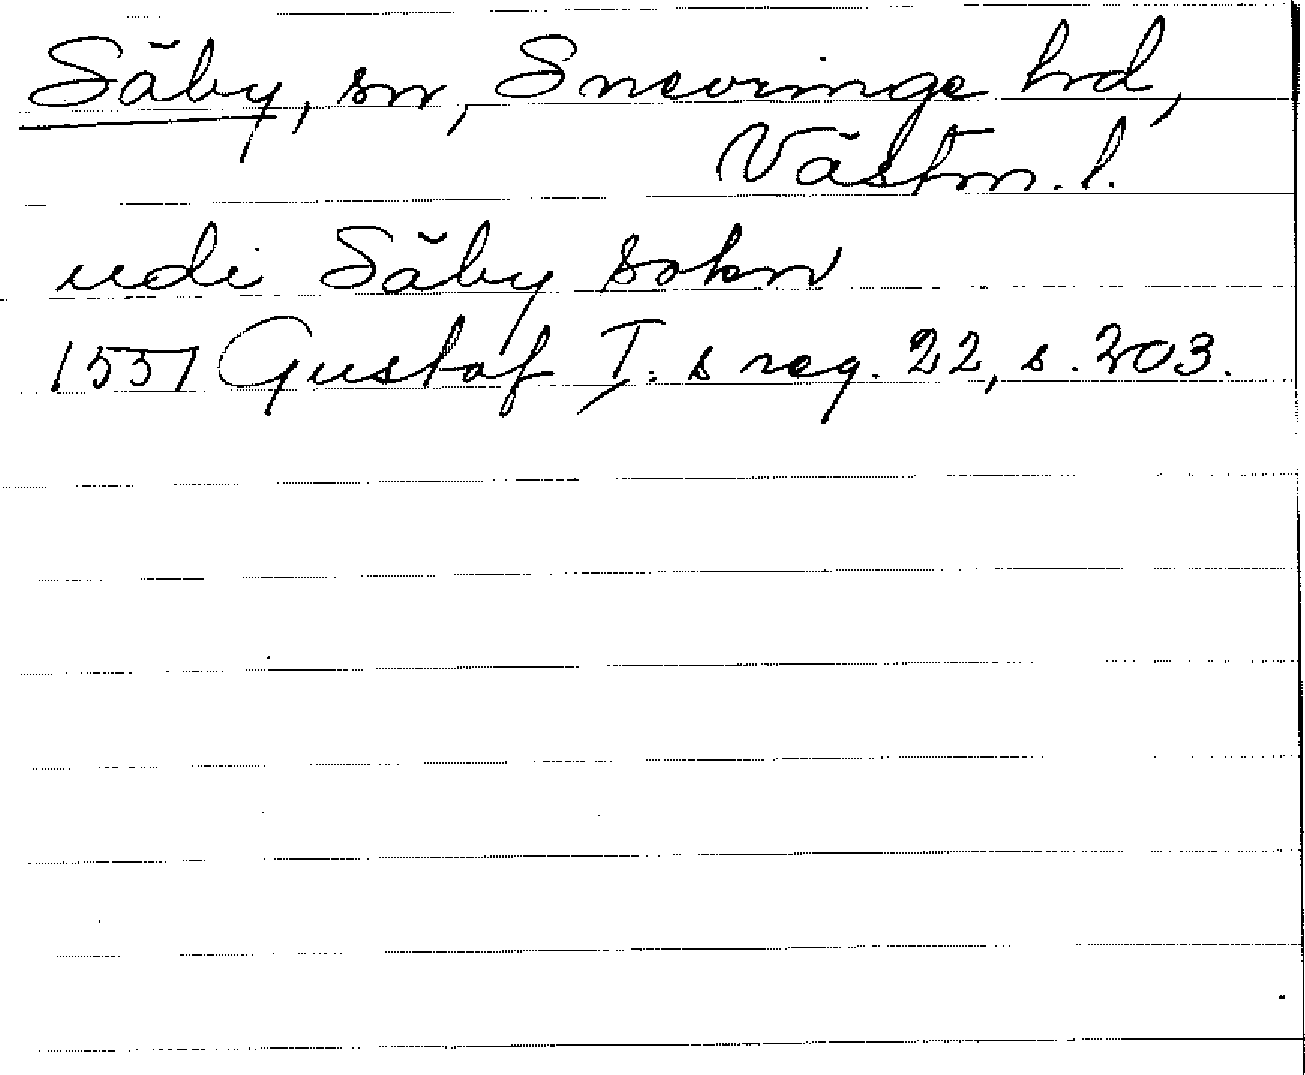 Säby, sn, Snevringe hd,
Västm. l.
udi Säby sokn
1551 Gustaf I:s reg. 22, s. 203.